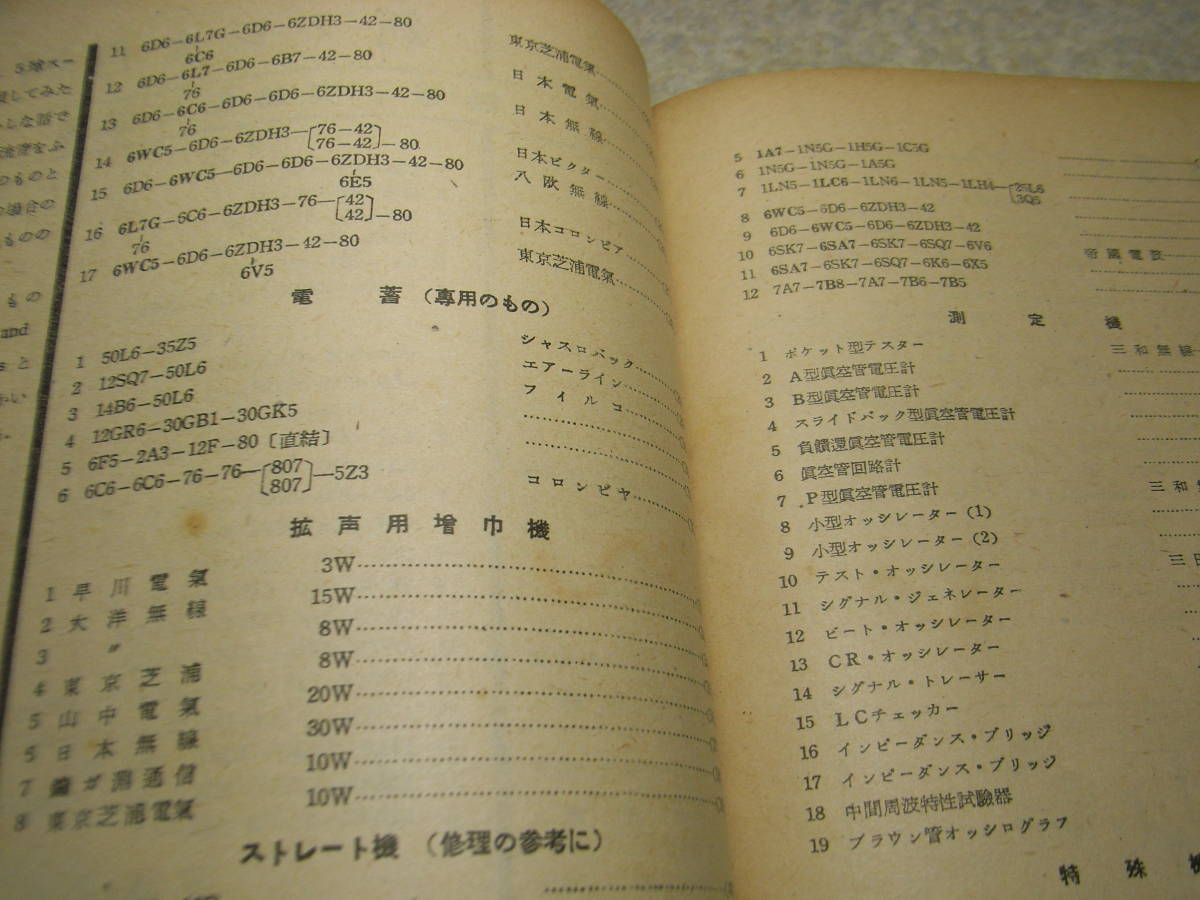 5球スー
してみた
しな話で
流管をふ
のものと
場合の
ものの
もの
and
sと
い
11 6D6−6L7G−6D6−6ZDH3−42−80
6C6
東京芝浦電氣
12 6D6−6L7−6D6−6B7−42−80
76
日本電氣
13 6D6−6C6−6D6−6D6−6ZDH3−42−80
76
日本無線
14 6WC5−6D6−6ZDH3−[76−42 76−42]−80
日本ビクター
15 6D6−6WC5−6D6−6D6−6ZDH3−42−80
6E5
八欧無線
16 6L7G−6C6−6ZDH3−76−[42 42]−80
76
日本コロンビア
17 6WC5−6D6−6ZDH3−42−80
6V5
東京芝浦電氣
電蓄(専用のもの)
1 50L6−35Z5 シャスロバック
2 12SQ7−50L6 エアーライン
3 14B6−50L6 フイルコ
4 12GR6−30GB1−30GK5
5 6F5−2A3−12F−80〔直結〕
6 6C6−6C6−76−76−[807 807]−5Z3 コロンビヤ
拡声用増巾機
1 早川電氣 3W
2 大洋無線 15W
3 〃 8W
4 東京芝浦 8W
5 山中電氣 20W
6 日本無線 30W
7 鐘ガ淵通信 10W
8 東京芝浦電氣 10W
ストレート機(修理の参考に)
5 1A7−1N5G−1H5G−1C5G
6 1N5G−1N5G−1A5G
7 1LN5−1LC6−1LN6−1LN5−1LH4−[25L6 3Q5]
8 6WC5−6D6−6ZDH3−42
9 6D6−6WC5−6D6−6ZDH3−42
10 6SK7−6SA7−6SK7−6SQ7−6V6 帝國電波
11 6SA7−6SK7−6SQ7−6K6−6X5
12 7A7−7B8−7A7−7B6−7B5
測定機
1 ポケット型テスター 三和無線
2 A型眞空管電圧計
3 B型眞空管電圧計
4 スライドバック型眞空管電圧計
5 負饋還眞空管電圧計
6 眞空管回路計
7 P型眞空管電圧計 三和無
8 小型オッシレーター(1)
9 小型オッシレーター(2)
10 テスト・オッシレーター 三田
11 シグナル・ジェネレーター
12 ビート・オッシレーター
13 CR・オッシレーター
14 シグナル・トレーサー
15 LCチェッカー
16 インピーダンス・ブリッジ
17 インピーダンス・ブリッジ
18 中間周波特性試驗器
19 ブラウン管オッシログラフ
特殊機